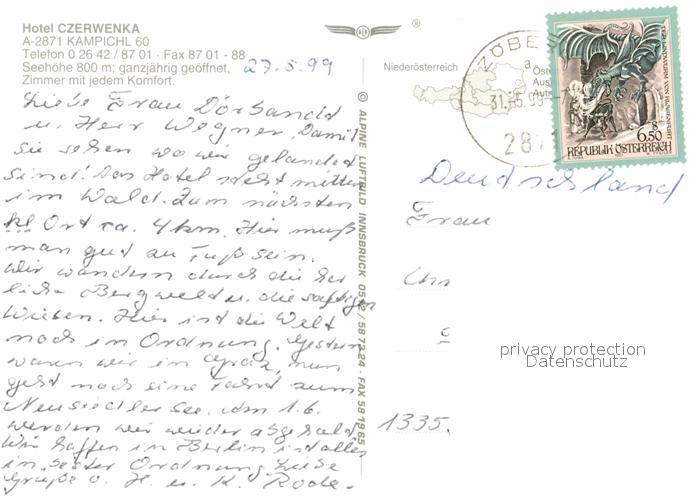 Hotel CZERWENKA
A-2871 KAMPICHL 60
Telefon 0 26 42 / 87 01 · Fax 87 01 - 88
Seehöhe 800 m; ganzjährig geöffnet,
Zimmer mit jedem Komfort.
27.5.99
Liebe Frau
u. Herr Wegner, Damit
sie sehen wo wir gelandet
sind! Das Hotel steht mitten
im Wald. Zum nächsten
kl Ort ca. 4 km. Hier muß
man gut zu Fuß sein.
Wir wandern durch die herr
liche Bergwelt u. die saftigen
Wiesen. Hier ist die Welt
noch in Ordnung. Gestern
waren wir in Graz, nun
geht noch eine Fahrt zum
Neusiedler See. Am 1.6.
werden wir wieder abgeholt
Wir hoffen in Berlin ist alles
in bester Ordnung. Liebe
Grüße v. H. u. K. Rode.
© ALPINE LUFTBILD INNSBRUCK 0512 / 58 73 24 · FAX 58 19 65
®
Niederösterreich
ZÖBER
a
31.-5.99
2871
Öste
Aus
Autr
8
6.50
REPUBLIK ÖSTERREICH
Deutschland
Frau
1335.
privacy protection
Datenschutz